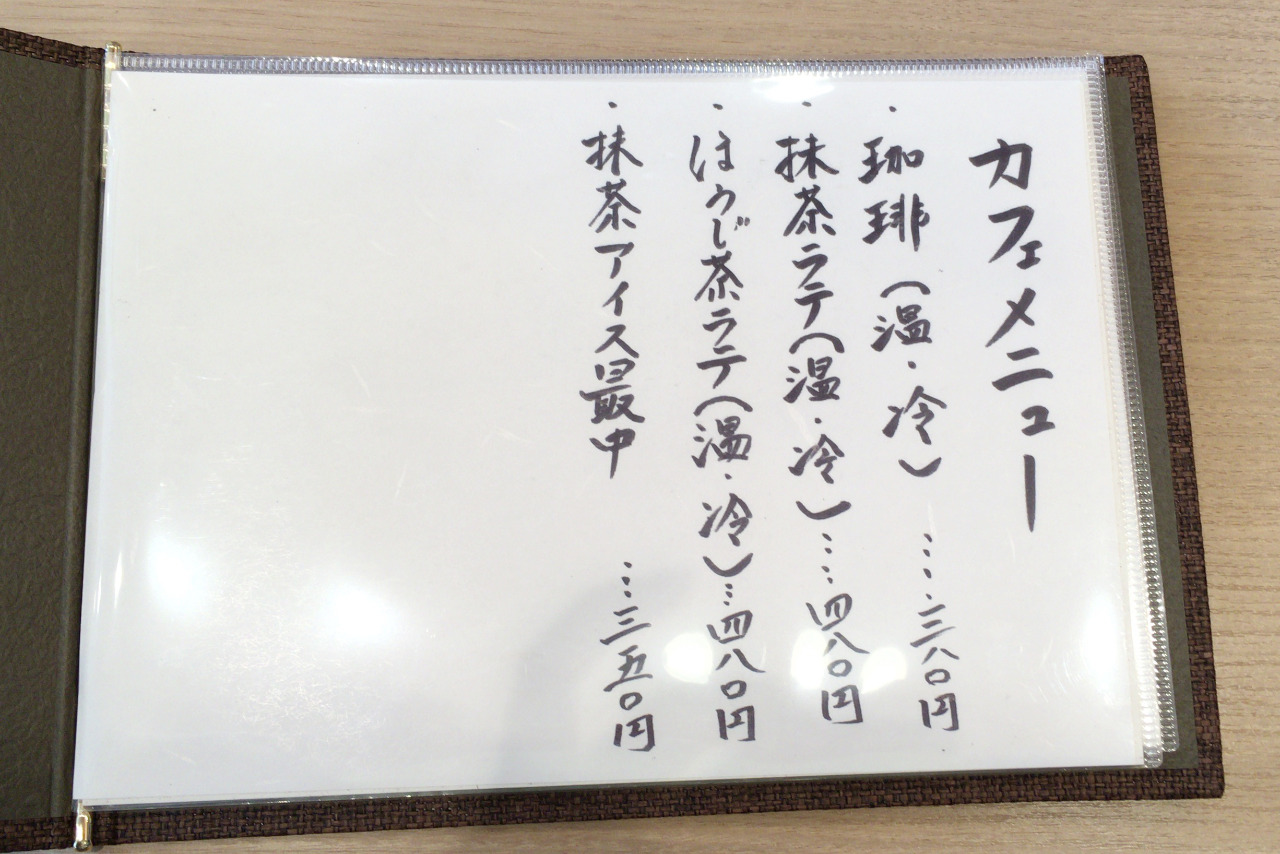 カフェメニュー
・珈琲（温・冷）……三八〇円
・抹茶ラテ（温・冷）……四八〇円
・ほうじ茶ラテ（温・冷）…四八〇円
・抹茶アイス最中…三五〇円